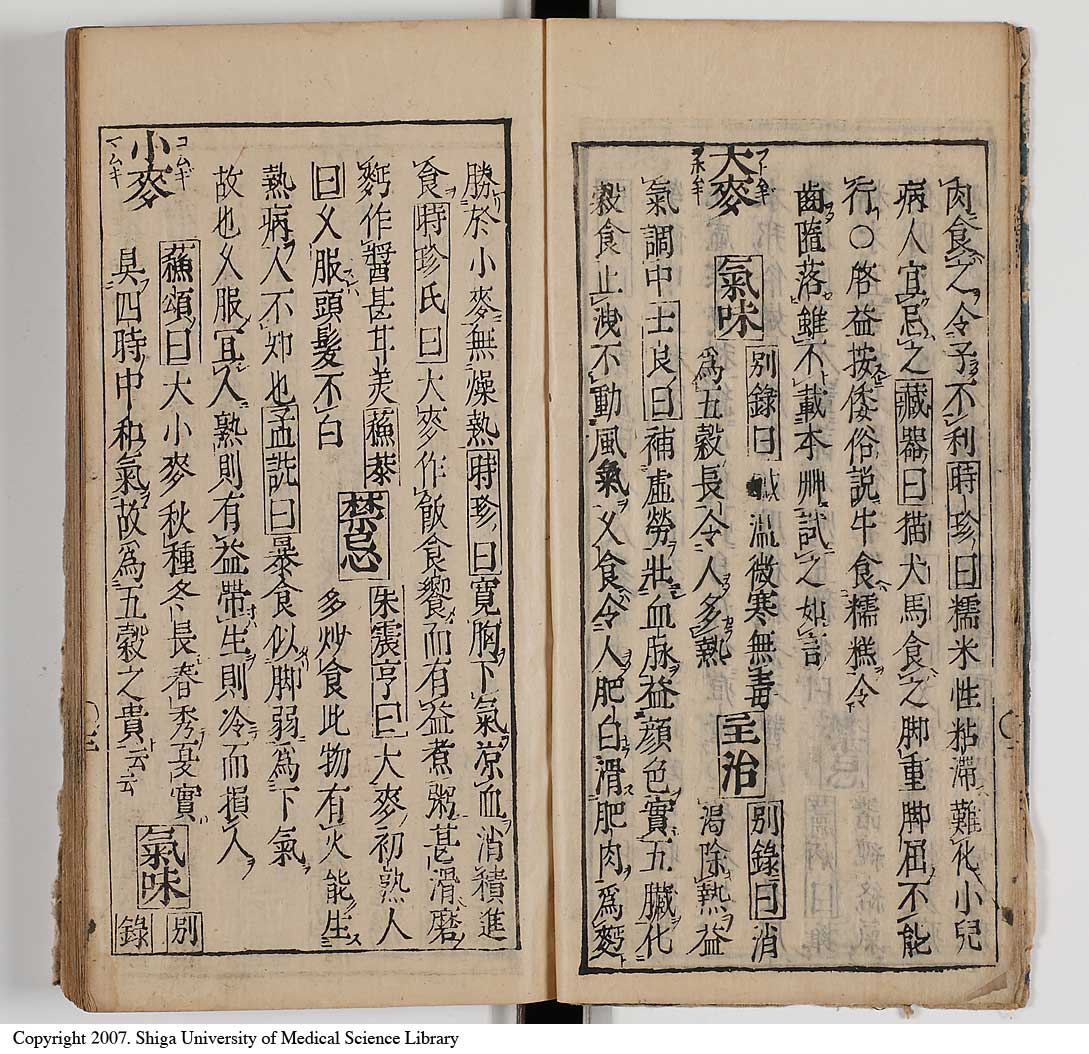 肉食之令子不利時珍曰糯米性粘滞難化小兒
病人宜忌之藏器曰猫犬馬食之脚重脚屈不能
行○啓益按倭俗説牛食糯糕令
齒隨落雖不載本艸試之如言
大麥
フトムギ
ヲホムギ
氣味
別錄曰鹹溫微寒無毒
為五穀長令人多熱
主治
別錄曰消
渇除熱益
氣調中士良曰補虚勞壯血脉益顔色實五臟化
穀食止洩不動風氣久食令人肥白滑肥肉為麪
勝於小麥無燥熱時珍曰寛胸下氣凉血消積進
食時珍氏曰大麥作飯食饗而有益煮粥甚滑磨
麪作醬甚甘美蘓恭
曰久服頭髮不白
禁忌
朱震亨曰大麥初熟人
多炒食此物有火能生
熱病人不知也孟詵曰暴食似脚弱為下氣
故也久服宜人熟則有益帶生則冷而損人
小麥
コムギ
マムギ
蘓頌曰大小麥秋種冬長春秀夏實
具四時中和氣故為五穀之貴云云
氣味
別
錄
Copyright 2007. Shiga University of Medical Science Library